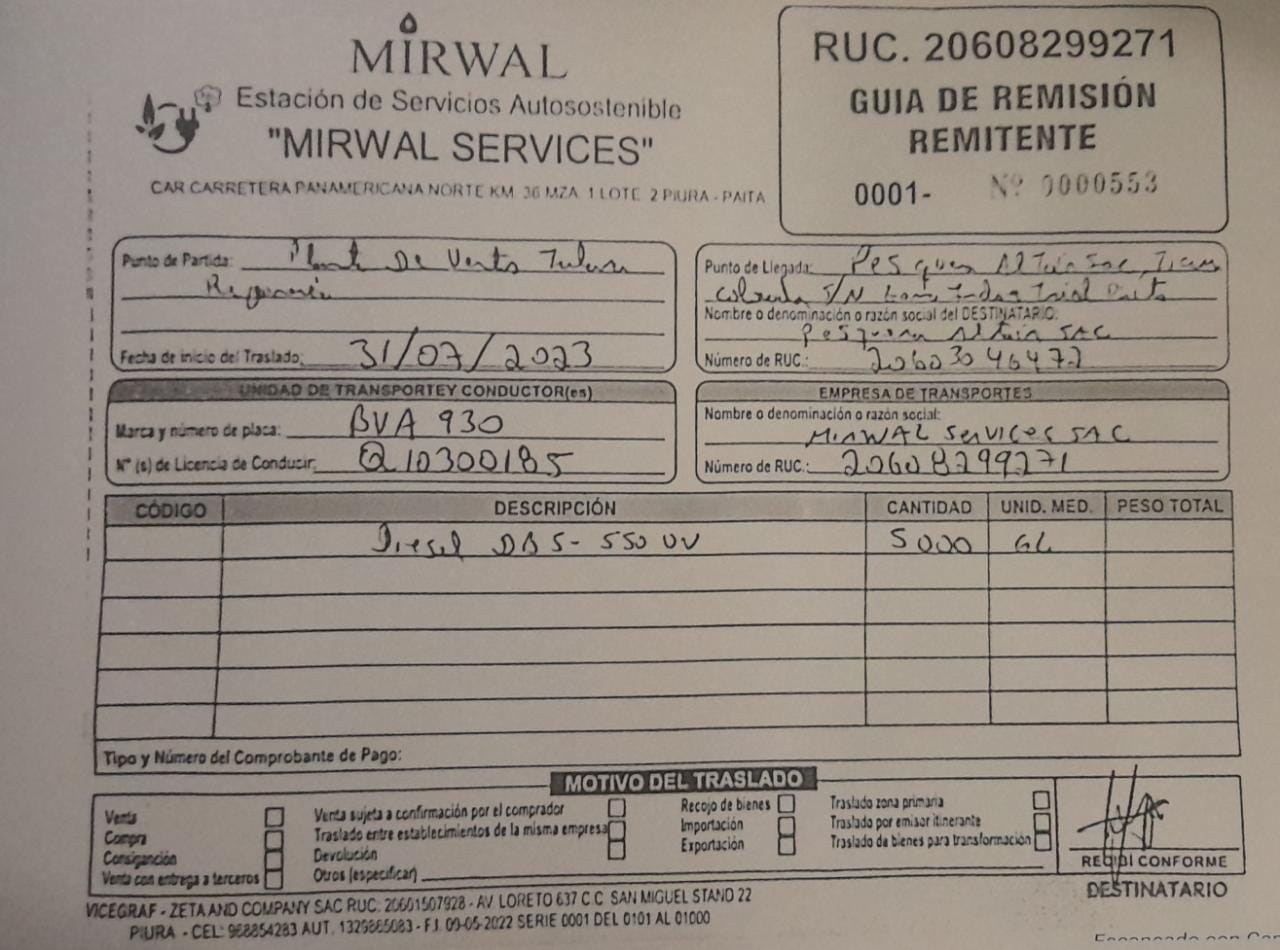 MIRWAL
Estación de Servicios Autosostenible
"MIRWAL SERVICES"
CAR CARRETERA PANAMERICANA NORTE KM. 36 MZA. 1 LOTE. 2 PIURA - PAITA
RUC. 20608299271
GUIA DE REMISIÓN
REMITENTE
0001- Nº 0000553
Punto de Partida: Planta De Venta
Fecha de inicio del Traslado: 31/07/2023
Punto de Llegada: Pesquera Altair SAC,
S/N Zona Industrial Paita
Nombre o denominación o razón social del DESTINATARIO:
Pesquera Altair SAC
Número de RUC.: 20603046472
UNIDAD DE TRANSPORTEY CONDUCTOR(es)
Marca y número de placa: BVA 930
N° (s) de Licencia de Conducir: Q10300185
EMPRESA DE TRANSPORTES
Nombre o denominación o razón social:
MIRWAL Services SAC
Número de RUC.: 20608299271
CÓDIGO DESCRIPCIÓN CANTIDAD UNID. MED. PESO TOTAL
Diesel DB5- S50 UV 5000 GL
Tipo y Número del Comprobante de Pago:
MOTIVO DEL TRASLADO
Venta
Compra
Consigancíón
Venta con entrega a terceros
Venta sujeta a confirmación por el comprador
Traslado entre establecimientos de la misma empresa
Devolución
Otros (especificar)
Recojo de bienes
Importación
Exportación
Traslado zona primaria
Traslado por emisor itinerante
Traslado de bienes para transformación
RECIBÍ CONFORME
DESTINATARIO
VICEGRAF - ZETA AND COMPANY SAC RUC: 20601507928 - AV. LORETO 637 C.C. SAN MIGUEL STAND 22
PIURA - CEL: 968854283 AUT. 1329865083 - F.I. 09-05-2022 SERIE 0001 DEL 0101 AL 01000